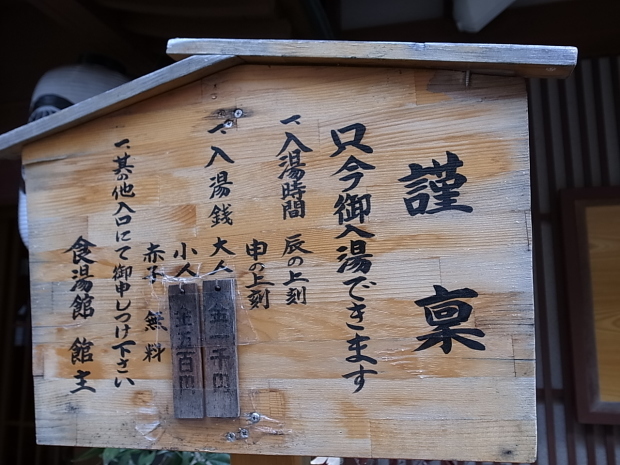 謹稟
只今御入湯できます
一、入湯時間 辰の上刻
申の上刻
一、入湯銭 大人 金一千円
小人 金五百円
赤子 無料
一、其の他入口にて御申しつけ下さい
食湯館 館主